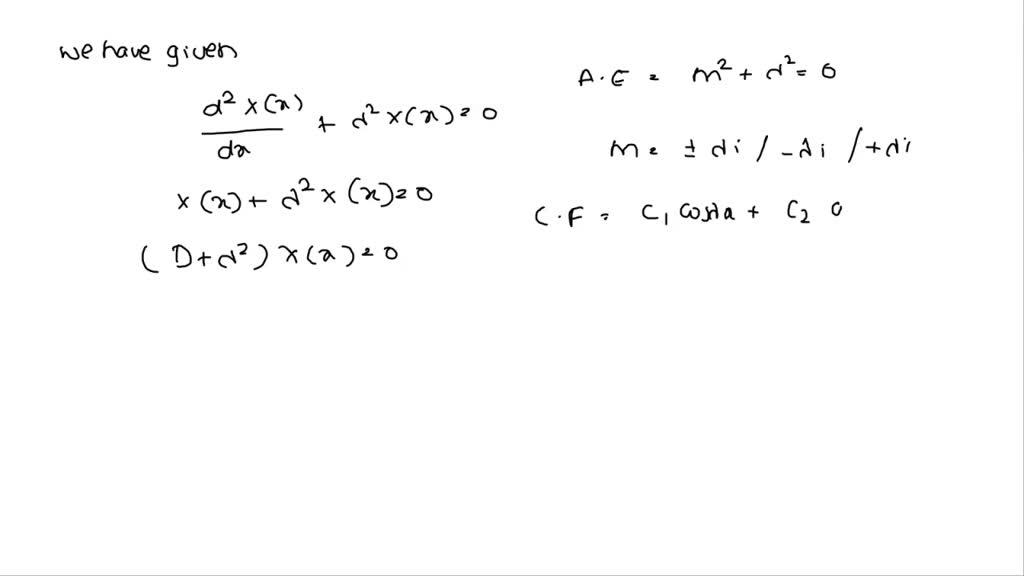 we have given
d² x(x) / dx + λ² x(x) = 0
x(x) + λ² x (x) = 0
( D + λ² ) x (x) = 0
A.E = m² + λ² = 0
m = ± λi / -λi / +λi
C.F = C₁ cosλx + C₂ c